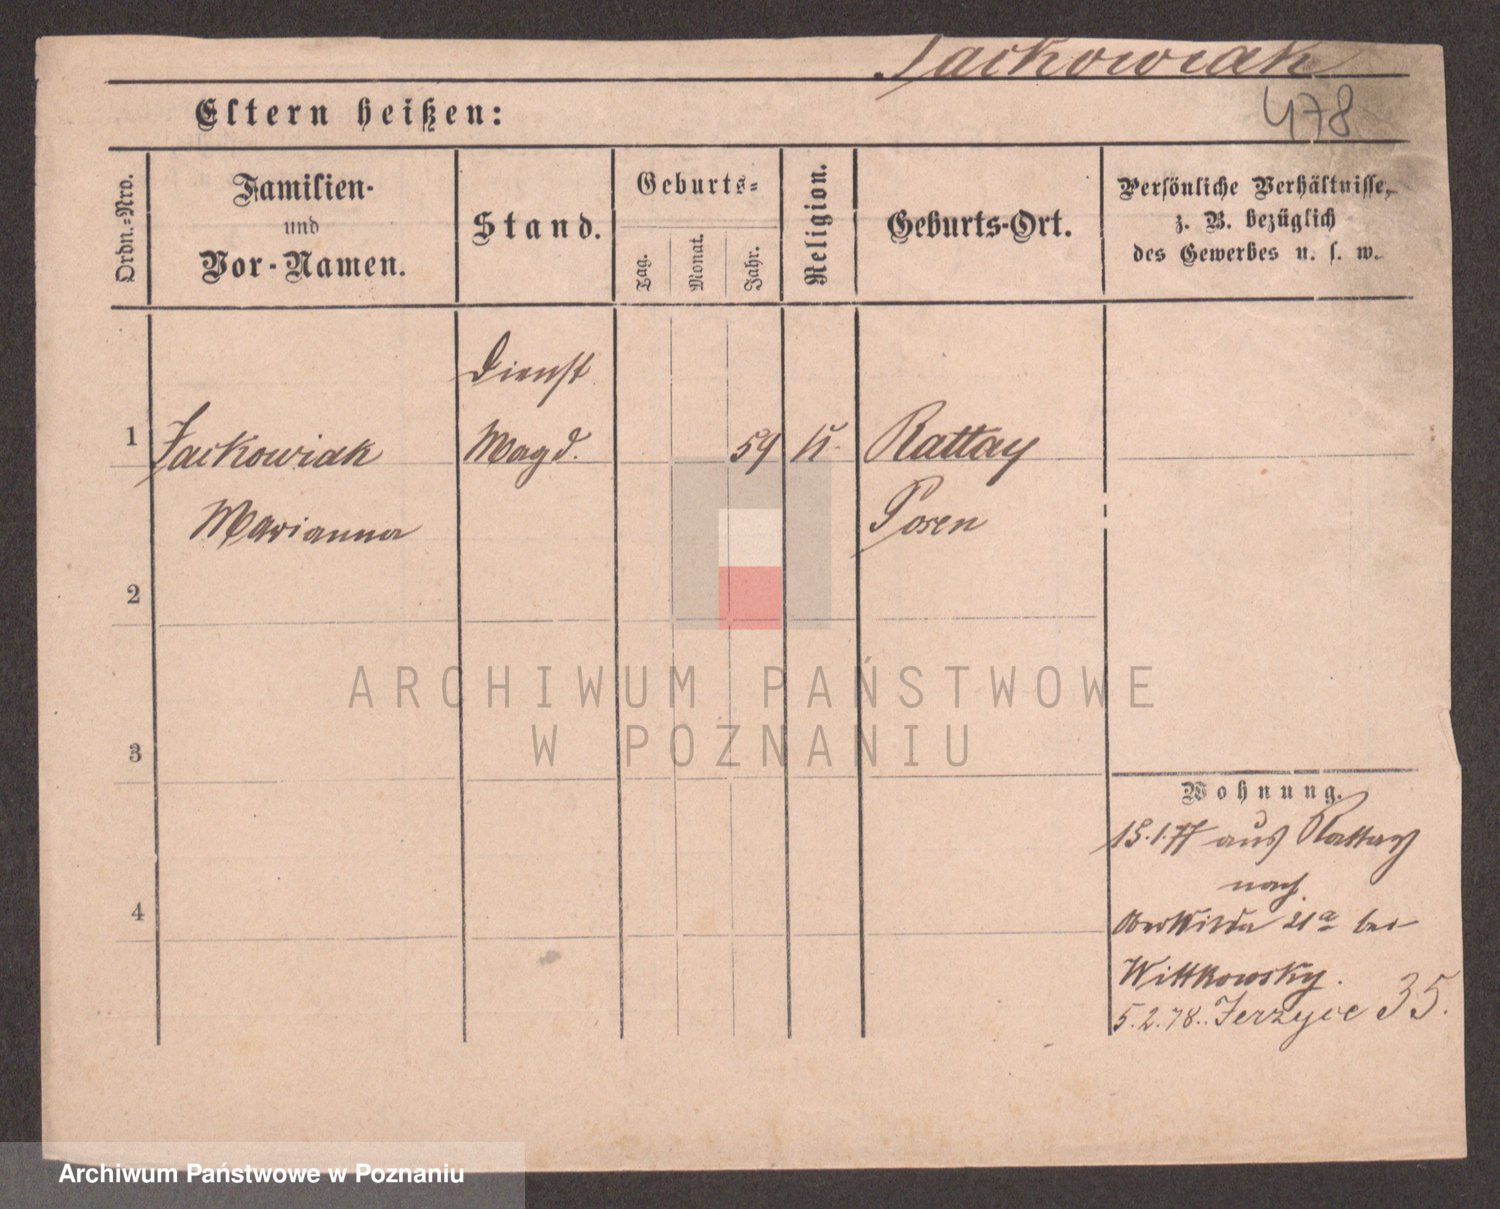 Jackowiak
478
Eltern heißen:
Ordn.-Nro.
Familien-
und
Vor-Namen.
Stand.
Geburts-
Tag.
Monat.
Jahr.
Religion.
Geburts-Ort.
Persönliche Verhältnisse,
z. B. bezüglich
des Gewerbes u. s. w.
Dienst
1 Jackowiak Magd. 59 K. Rattay
Marianna Posen
2
3
4
Wohnung.
15.1.77 aus Rattay
nach
OberWilda 21a bei
Wittkowsky.
5.2.78. Jerzyce 35.
ARCHIWUM PAŃSTWOWE
W POZNANIU
Archiwum Państwowe w Poznaniu